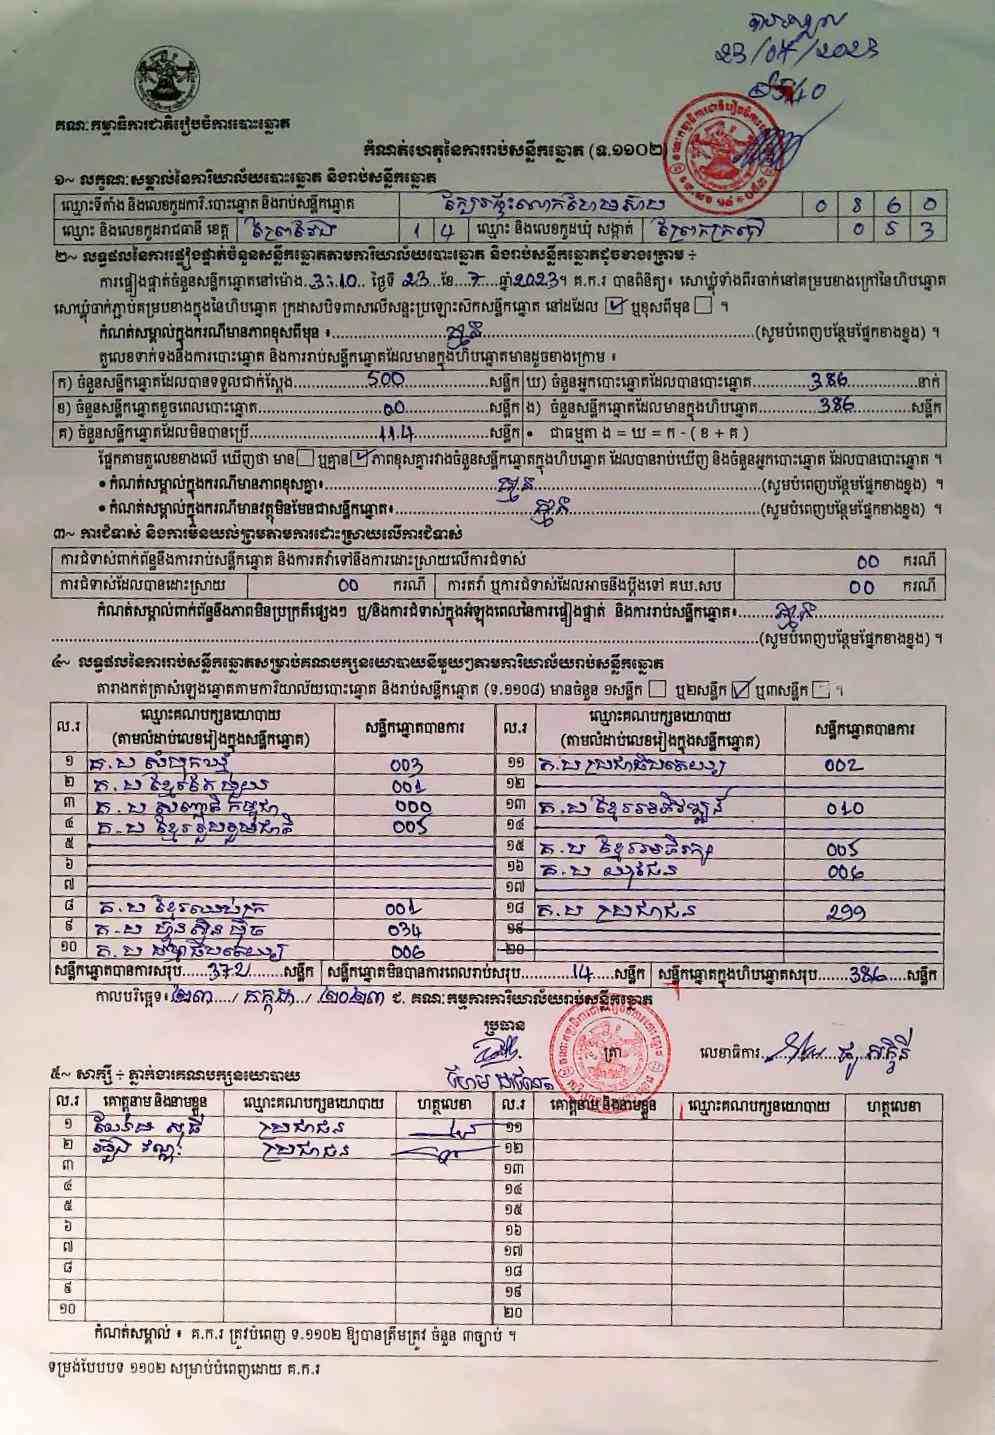 23/07/2023
គណៈកម្មាធិការជាតិរៀបចំការបោះឆ្នោត
កំណត់ហេតុនៃការរាប់សន្លឹកឆ្នោត (ទ.១១០២)
១~ លក្ខណៈសម្គាល់នៃការិយាល័យបោះឆ្នោត និងរាប់សន្លឹកឆ្នោត
ឈ្មោះទីតាំង និងលេខកូដការិ.បោះឆ្នោត និងរាប់សន្លឹកឆ្នោត 0 8 6 0
ឈ្មោះ និងលេខកូដរាជធានី ខេត្ត ព្រៃវែង 1 4 ឈ្មោះ និងលេខកូដឃុំ សង្កាត់ 0 5 3
២~ លទ្ធផលនៃការផ្ទៀងផ្ទាត់ចំនួនសន្លឹកឆ្នោតតាមការិយាល័យបោះឆ្នោត និងរាប់សន្លឹកឆ្នោតដូចខាងក្រោម ÷
ការផ្ទៀងផ្ទាត់ចំនួនសន្លឹកឆ្នោតនៅម៉ោង 3:10 ថ្ងៃទី 23 ខែ 7 ឆ្នាំ 2023។ គ.ក.រ បានពិនិត្យ៖ សោឃ្លុំទាំងពីរចាក់នៅគម្របខាងក្រៅនៃហិបឆ្នោត
សោឃ្លុំចាក់ភ្ជាប់គម្របខាងក្នុងនៃហិបឆ្នោត ក្រដាសបិទពាសលើសន្ទះប្រឡោះសិកសន្លឹកឆ្នោត នៅដដែល ☑ ឬខុសពីមុន ☐ ។
កំណត់សម្គាល់ក្នុងករណីមានភាពខុសពីមុន ៖ គ្មាន (សូមបំពេញបន្ថែមផ្នែកខាងខ្នង) ។
តួលេខទាក់ទងនឹងការបោះឆ្នោត និងការរាប់សន្លឹកឆ្នោតដែលមានក្នុងហិបឆ្នោតមានដូចខាងក្រោម ៖
ក) ចំនួនសន្លឹកឆ្នោតដែលបានទទួលជាក់ស្តែង 500 សន្លឹក ឃ) ចំនួនអ្នកបោះឆ្នោតដែលបានបោះឆ្នោត 386 នាក់
ខ) ចំនួនសន្លឹកឆ្នោតខូចពេលបោះឆ្នោត 00 សន្លឹក ង) ចំនួនសន្លឹកឆ្នោតដែលមានក្នុងហិបឆ្នោត 386 សន្លឹក
គ) ចំនួនសន្លឹកឆ្នោតដែលមិនបានប្រើ 114 សន្លឹក • ជាធម្មតា ង = ឃ = ក - ( ខ + គ )
ផ្អែកតាមតួលេខខាងលើ ឃើញថា មាន ☐ ឬគ្មាន ☑ ភាពខុសគ្នារវាងចំនួនសន្លឹកឆ្នោតក្នុងហិបឆ្នោត ដែលបានរាប់ឃើញ និងចំនួនអ្នកបោះឆ្នោត ដែលបានបោះឆ្នោត ។
• កំណត់សម្គាល់ក្នុងករណីមានភាពខុសគ្នា៖ គ្មាន (សូមបំពេញបន្ថែមផ្នែកខាងខ្នង) ។
• កំណត់សម្គាល់ក្នុងករណីមានវត្ថុមិនមែនជាសន្លឹកឆ្នោត៖ គ្មាន (សូមបំពេញបន្ថែមផ្នែកខាងខ្នង) ។
៣~ ការជំទាស់ និងការមិនយល់ព្រមតាមការដោះស្រាយលើការជំទាស់
ការជំទាស់ពាក់ព័ន្ធនឹងការរាប់សន្លឹកឆ្នោត និងការតវ៉ាទៅនឹងការដោះស្រាយលើការជំទាស់ 00 ករណី
ការជំទាស់ដែលបានដោះស្រាយ 00 ករណី ការតវ៉ា ឬការជំទាស់ដែលអាចនឹងប្តឹងទៅ គឃ.សប 00 ករណី
កំណត់សម្គាល់ពាក់ព័ន្ធនឹងភាពមិនប្រក្រតីផ្សេងៗ ឬ/និងការជំទាស់ក្នុងអំឡុងពេលនៃការផ្ទៀងផ្ទាត់ និងការរាប់សន្លឹកឆ្នោត៖ គ្មាន
(សូមបំពេញបន្ថែមផ្នែកខាងខ្នង) ។
៤~ លទ្ធផលនៃការរាប់សន្លឹកឆ្នោតសម្រាប់គណបក្សនយោបាយនីមួយៗតាមការិយាល័យរាប់សន្លឹកឆ្នោត
តារាងកត់ត្រាសំឡេងឆ្នោតតាមការិយាល័យបោះឆ្នោត និងរាប់សន្លឹកឆ្នោត (ទ.១១០៨) មានចំនួន ១សន្លឹក ☐ ឬ២សន្លឹក ☑ ឬ៣សន្លឹក ☐ ។
ល.រ ឈ្មោះគណបក្សនយោបាយ (តាមលំដាប់លេខរៀងក្នុងសន្លឹកឆ្នោត) សន្លឹកឆ្នោតបានការ ល.រ ឈ្មោះគណបក្សនយោបាយ (តាមលំដាប់លេខរៀងក្នុងសន្លឹកឆ្នោត) សន្លឹកឆ្នោតបានការ
១ គ.ប សំបុកឃ្មុំ 003 ១១ គ.ប ប្រជាធិបតេយ្យ 002
២ គ.ប ខ្មែរតែមួយ 001 ១២
៣ គ.ប សញ្ជាតិកម្ពុជា 000 ១៣ គ.ប ខ្មែរអភិវឌ្ឍន៍ 010
៤ គ.ប ខ្មែររួបរួមជាតិ 005 ១៤
៥ ១៥ គ.ប ខ្មែរអភិរក្ស 005
៦ ១៦ គ.ប យុវជន 006
៧ ១៧
៨ គ.ប ខ្មែរឈប់ក្រ 001 ១៨ គ.ប ប្រជាជន 299
៩ គ.ប ហ៊្វុនស៊ិនប៉ិច 034 ១៩
១០ 006 ២០
សន្លឹកឆ្នោតបានការសរុប 372 សន្លឹក សន្លឹកឆ្នោតមិនបានការពេលរាប់សរុប 14 សន្លឹក សន្លឹកឆ្នោតក្នុងហិបឆ្នោតសរុប 386 សន្លឹក
កាលបរិច្ឆេទ៖ ២៣ / កក្កដា / ២០២៣ ជ. គណៈកម្មការការិយាល័យរាប់សន្លឹកឆ្នោត
ប្រធាន
ត្រា លេខាធិការ
៥~ សាក្សី ÷ ភ្នាក់ងារគណបក្សនយោបាយ
ល.រ គោត្តនាម និងនាមខ្លួន ឈ្មោះគណបក្សនយោបាយ ហត្ថលេខា ល.រ គោត្តនាម និងនាមខ្លួន ឈ្មោះគណបក្សនយោបាយ ហត្ថលេខា
១ ប្រជាជន ១១
២ ប្រជាជន ១២
៣ ១៣
៤ ១៤
៥ ១៥
៦ ១៦
៧ ១៧
៨ ១៨
៩ ១៩
១០ ២០
កំណត់សម្គាល់ ៖ គ.ក.រ ត្រូវបំពេញ ទ.១១០២ ឱ្យបានត្រឹមត្រូវ ចំនួន ៣ច្បាប់ ។
ទម្រង់បែបបទ ១១០២ សម្រាប់បំពេញដោយ គ.ក.រ